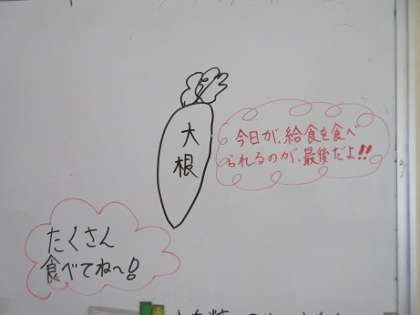 大根
今日が、給食を食べ
られるのが、最後だよ!!
たくさん
食べてね〜!